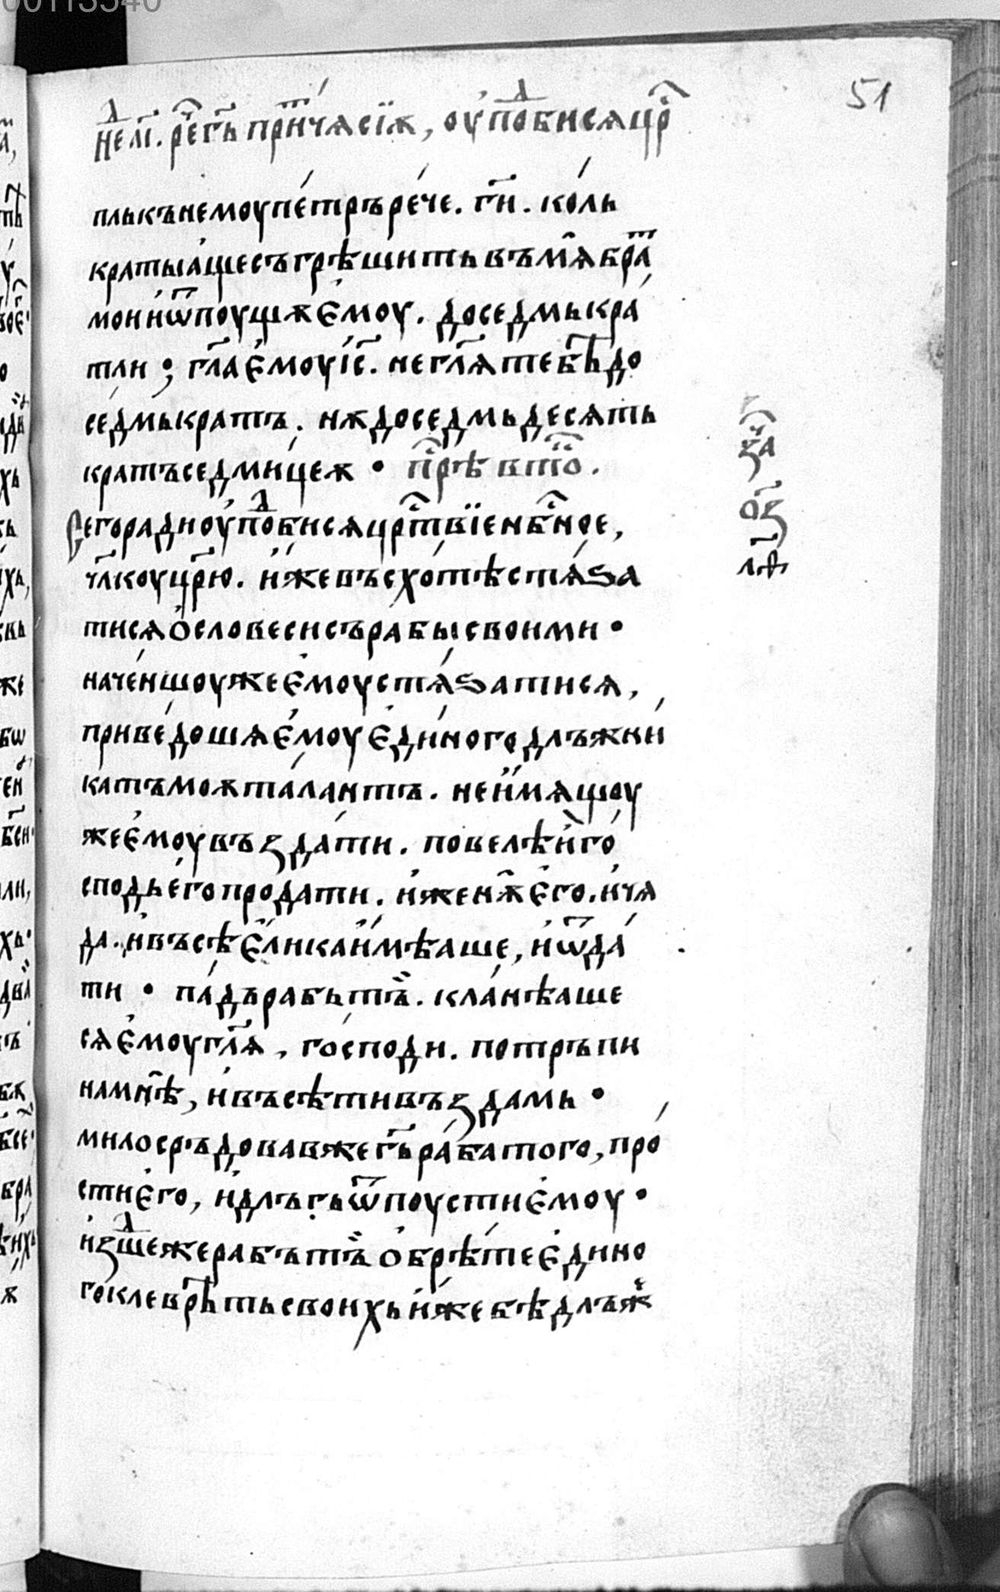 51
недⷧ҇ аı҃. рече гь притⷱ҇ѧ сїѫ, оуподⷪ҇бисѧ црⷭ҇
пль къ немоу петръ рече. г҃и. коль
краты аще съгрѣшить въ мѧ браⷮ
мои и ѿпоущѫ ємоу. до седмь кра
тли ; гл҃а ємоу іс҃. не гл҃ѧ тебѣ до
седмь кратъ. нѫ до седмьдесѧть
кратъ седмицеѫ • прⷣѣ вътⷪ҇.
Сего ради оуподⷪ҇бисѧ црⷭ҇твїе нбⷭ҇ное,
чл҃коу цр҃ю. иже въсхотѣ стѧѕа
тисѧ о словеси съ рабы своими •
наченшоу же ємоу стѧѕатисѧ,
приведошѧ ємоу єдиного длъжни
ка тъмоѫ талантъ. не имѧщоу
же ємоу въздати. повелѣ и го
сподь его продати. и женѫ его. и чѧ
да. и въсѣ єлика имѣаше, и ѿда
ти • падъ рабь тъ. кланѣаше
сѧ ємоу гл҃ѧ, господи. потръпи
на мнѣ, и въсѣ ти въздамь •
милосръдовав же гь раба того, про
сти его, и длъгь ѿпоусти ємоу •
изшⷣе же рабъ тъ обрѣте єдино
го клеврѣть своихь иже бѣ длъжⷩ
за҃
о҃з